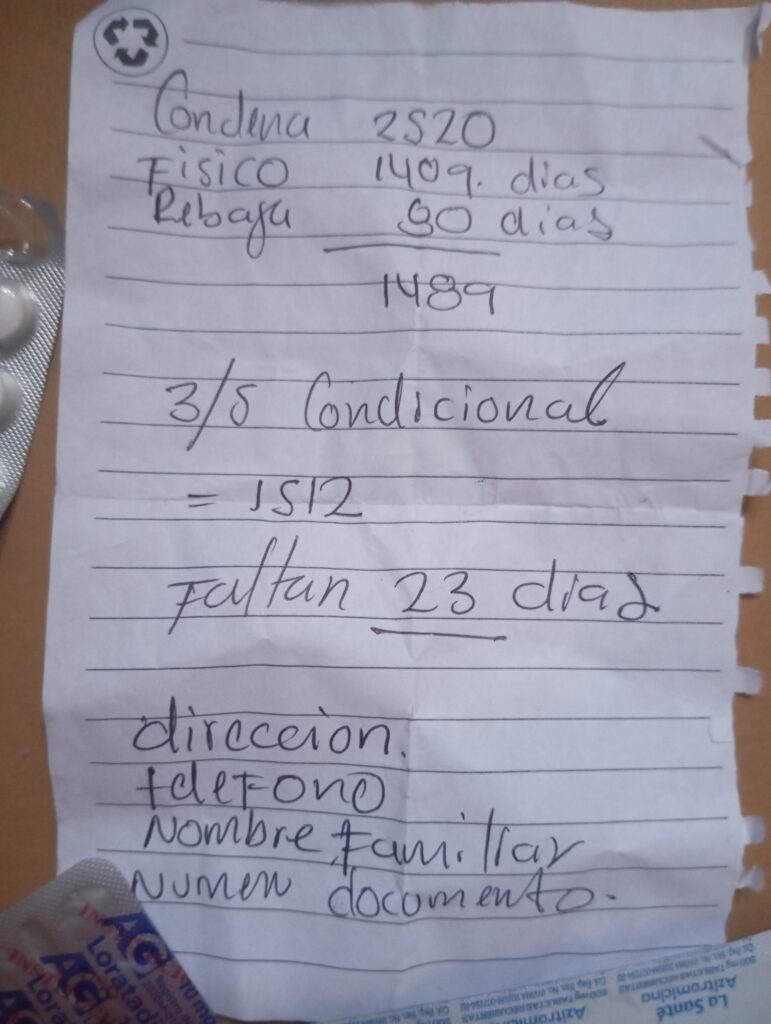 Condena 2520
Fisico 1409. dias
Rebaja 80 dias
1489
3/5 Condicional
= 1512
Faltan 23 dias
direccion.
telefono
Nombre Familiar
Numero documento.
AG
Loratad
AG
Lorata
La Santé
Azitromicina
500 mg TABLETAS RECUBIERTAS